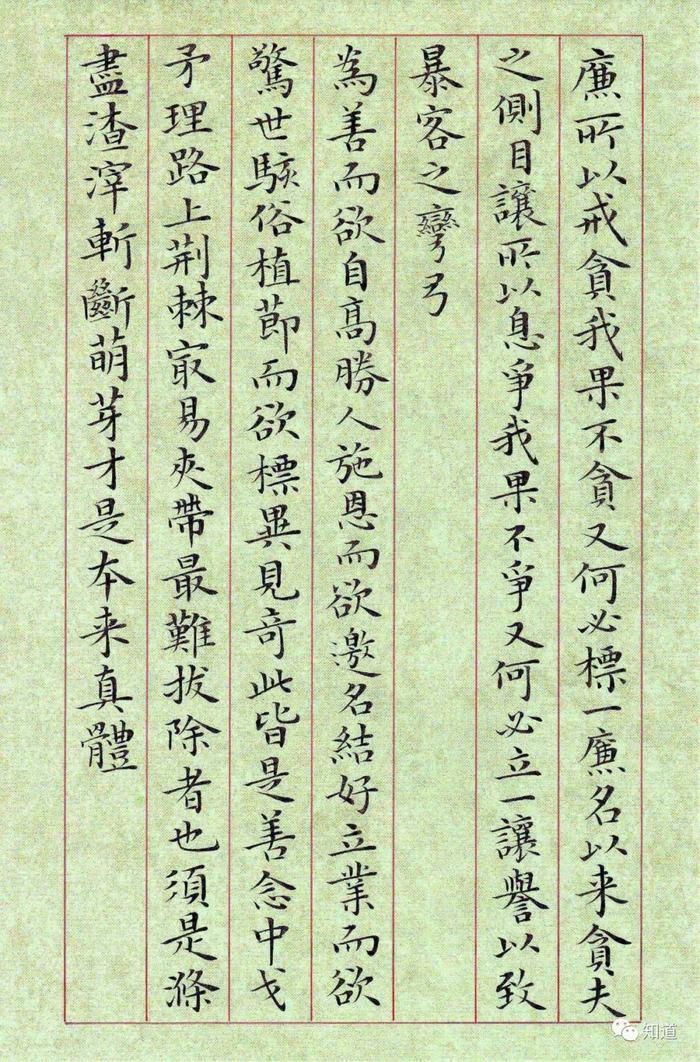 廉所以戒貪我果不貪又何必標一廉名以来貪夫
之側目讓所以息爭我果不爭又何必立一讓譽以致
暴客之彎弓
為善而欲自高勝人施恩而欲邀名結好立業而欲
驚世駭俗植節而欲標異見奇此皆是善念中戈
矛理路上荆棘㝡易夾帶最難拔除者也須是滌
盡渣滓斬斷萌芽才是本来真體
知道